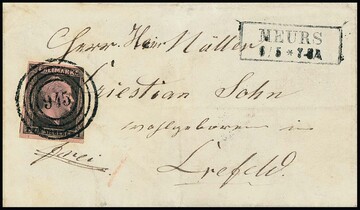 MEURS
6/5 * 7-8A
Herrn Hein Müller
FREIMARKE
945
Christian Sohn
wohlgeboren in
frei
Crefeld.